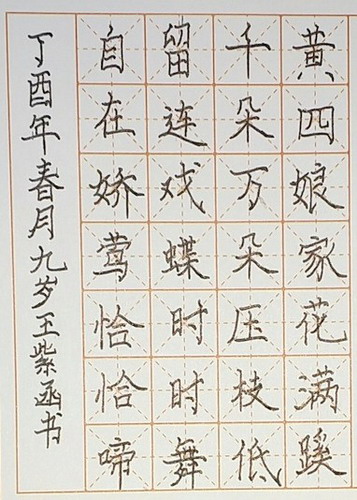 黄四娘家花满蹊
千朵万朵压枝低
留连戏蝶时时舞
自在娇莺恰恰啼
丁酉年春月九岁王紫函书